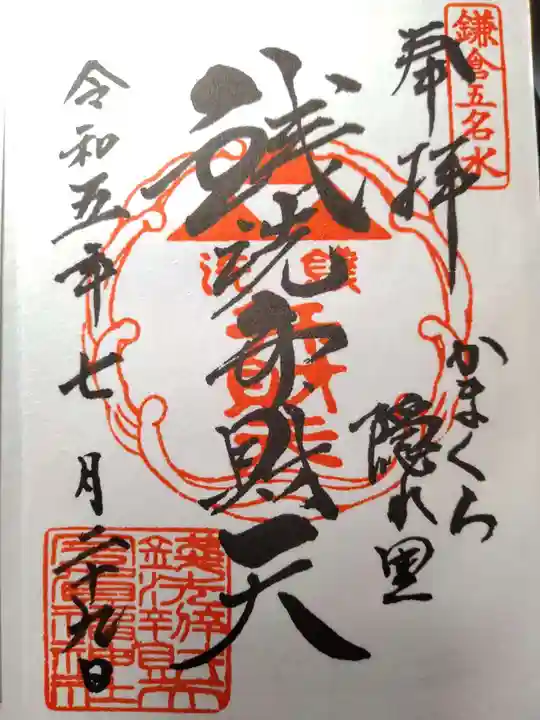 鎌倉五名水
奉拝
かまくら
隠れ里
銭洗弁財天
銭洗
令和五年七月二十九日